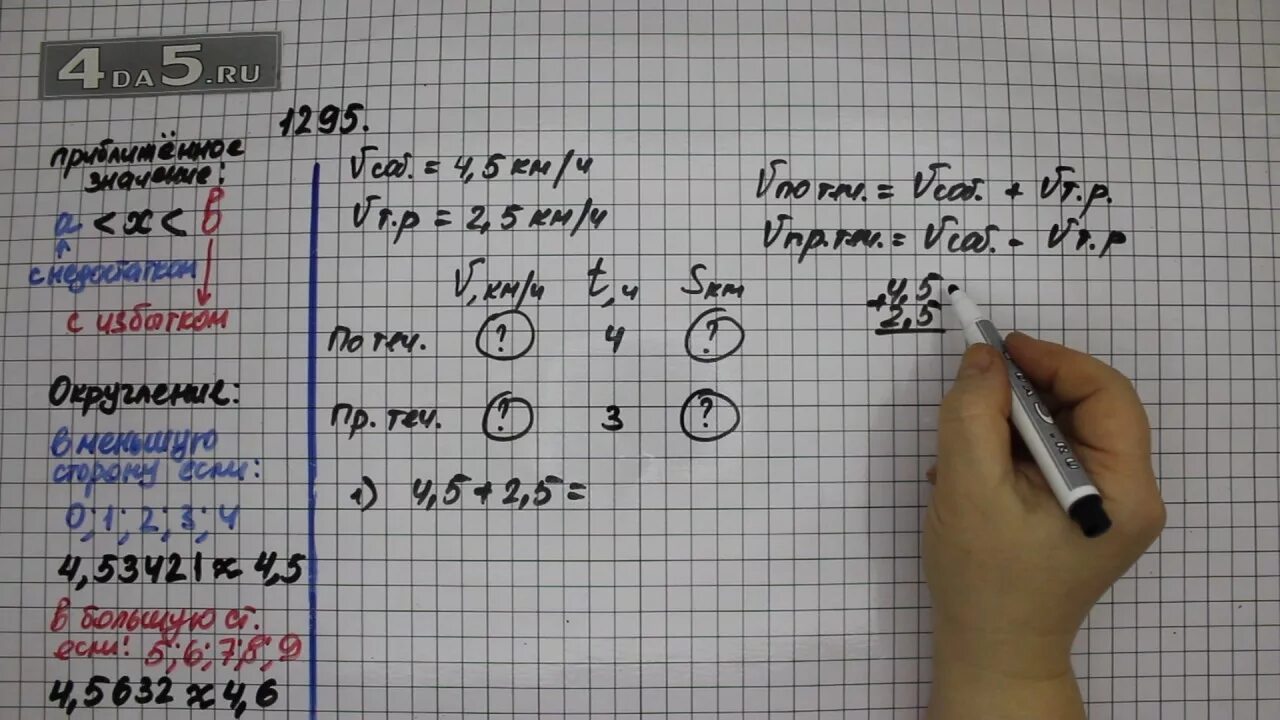 4DA5.RU
1295.
приближённое
значение:
a < x < b
с недостатком
с избытком
Округление:
в меньшую
сторону если:
0; 1; 2; 3; 4
4,53421 ≈ 4,5
в большую ст.
если: 5; 6; 7; 8; 9
4,5632 ≈ 4,6
Vсоб. = 4,5 км/ч
Vт.р = 2,5 км/ч
V, км/ч t, ч S км
По теч. ? 4 ?
Пр. теч. ? 3 ?
1) 4,5 + 2,5 =
Vпо теч. = Vсоб. + Vт.р.
Vпр.теч. = Vсоб. - Vт.р
4,5
+ 2,5